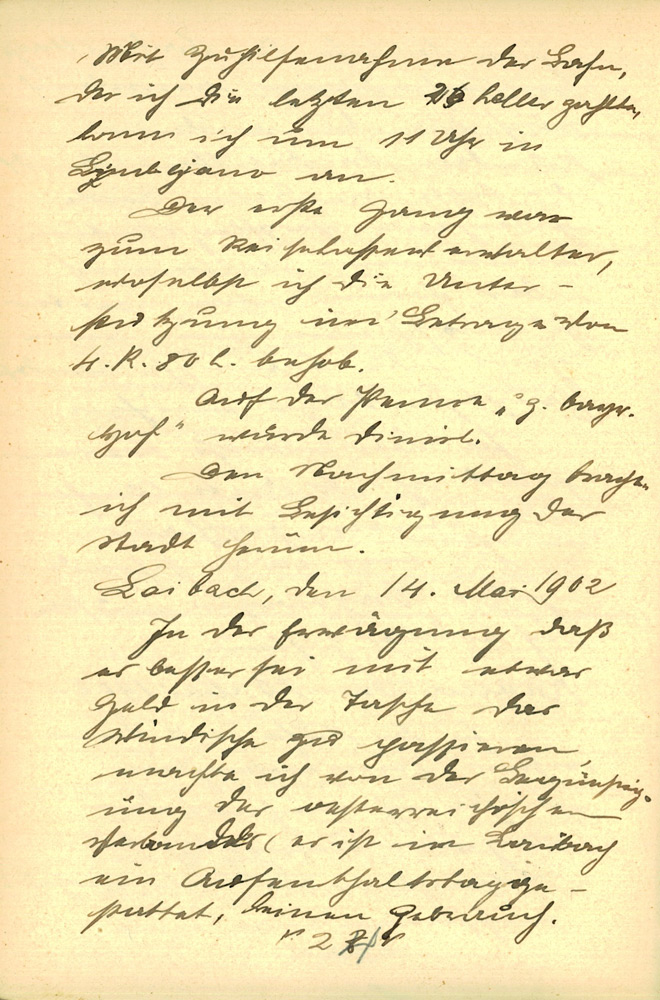 Mit Zuhilfenahme der Bahn,
der ich die letzten 26 heller zahlte,
kam ich um 11 Uhr in
Ljubljana an.
Der erste Gang war
zum Reisekassenverwalter,
woselbst ich die Unter-
stützung im Betrage von
4. K. 80 h. behob.
Auf der Penne „z. bayr.
Hof" wurde dinirt.
Den Nachmittag brachte
ich mit Besichtigung der
Stadt herum.
Laibach, den 14. Mai 1902
In der Erwägung daß
es besser sei mit etwas
Geld in der Tasche das
Windische zu passieren,
machte ich von der Begünstig-
ung des oesterreichischen
Verbandes (es ist in Laibach
ein Aufenthaltstag ge-
stattet, keinen Gebrauch.